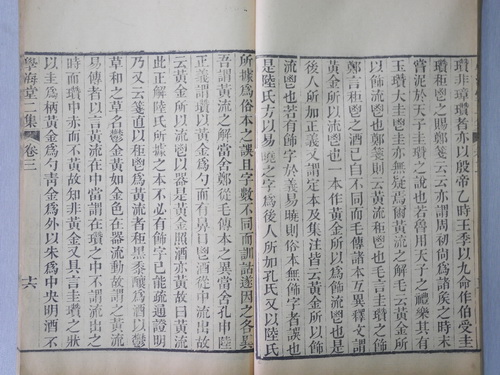 瓚非璋瓚者亦以殷帝乙時王季以九命作伯受圭
瓚秬鬯之賜鄭箋云云亦謂周初尚為諸矦之時未
嘗泥於天子圭瓚之說也若魯用天子之禮樂其有
玉瓚大圭鬯圭亦無疑焉爾黃流之解毛云黃金所
以飾流鬯也鄭箋則云黃流秬鬯也毛言圭瓚之飾
鄭言秬鬯之酒已自不同而毛傳諸本互異釋文謂
黃金所以流鬯也一本作黃金所以為飾流鬯也是
後人所加正義又謂定本及集注皆云黃金所以飾
流鬯也若有飾字於義易曉則俗本無飾字者誤也
是陸氏方以易曉之字為後人所加孔氏又以陸氏
所據為俗本之誤且字數不同而訓詁遂因之各異
吾謂黃流之解當舍鄭從毛傳本之異當舍孔申陸
正義謂瓚以黃金為勺而有鼻口鬯酒從中流出故
云黃金所以流鬯以器是黃金照酒亦黃故曰黃流
此正解陸氏所據之本不必有飾字已能疏通證明
乃又云箋直以秬鬯為黃流者秬黑黍釀為酒以鬱
草和之草名鬱金黃如金色在器流動故謂之黃流
易傳者以言黃流在中當謂在瓚之中不謂流出之
時而瓚中赤而不黃故知非黃金又具言圭瓚之狀
以圭為柄黃金為勺青金為外以朱為中央明酒不
學海堂二集 卷三 十六